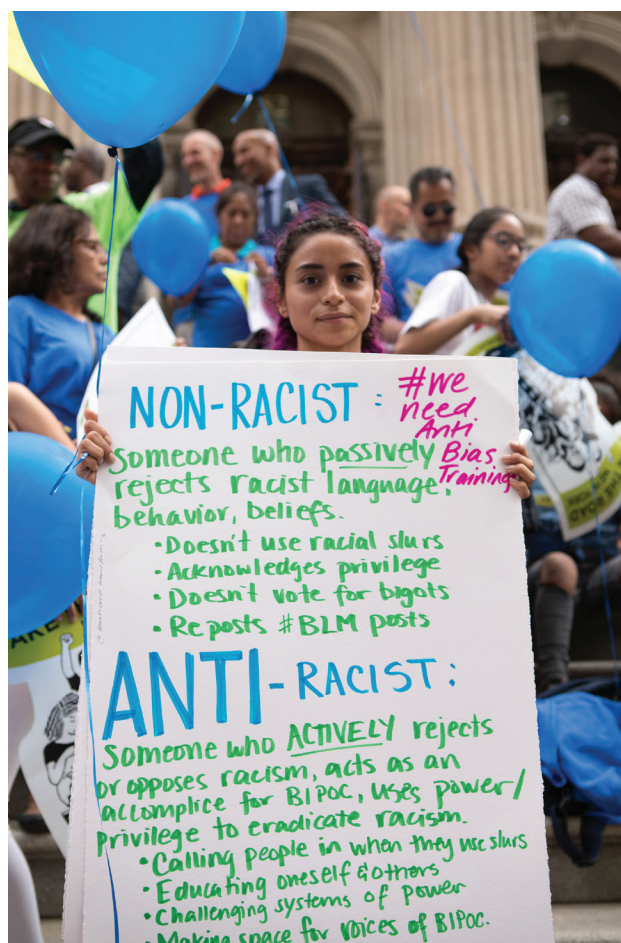 NON-RACIST :
#We
need
Anti
Bias
Training
Someone who passively
rejects racist language,
behavior, beliefs.
• Doesn't use racial slurs
• Acknowledges privilege
• Doesn't vote for bigots
• Reposts #BLM posts
ANTI-RACIST :
Someone who ACTIVELY rejects
or opposes racism, acts as an
accomplice for BIPOC, uses power/
privilege to eradicate racism.
• Calling people in when they use slurs
• Educating oneself & others
• Challenging systems of power
• Making space for voices of BIPOC.